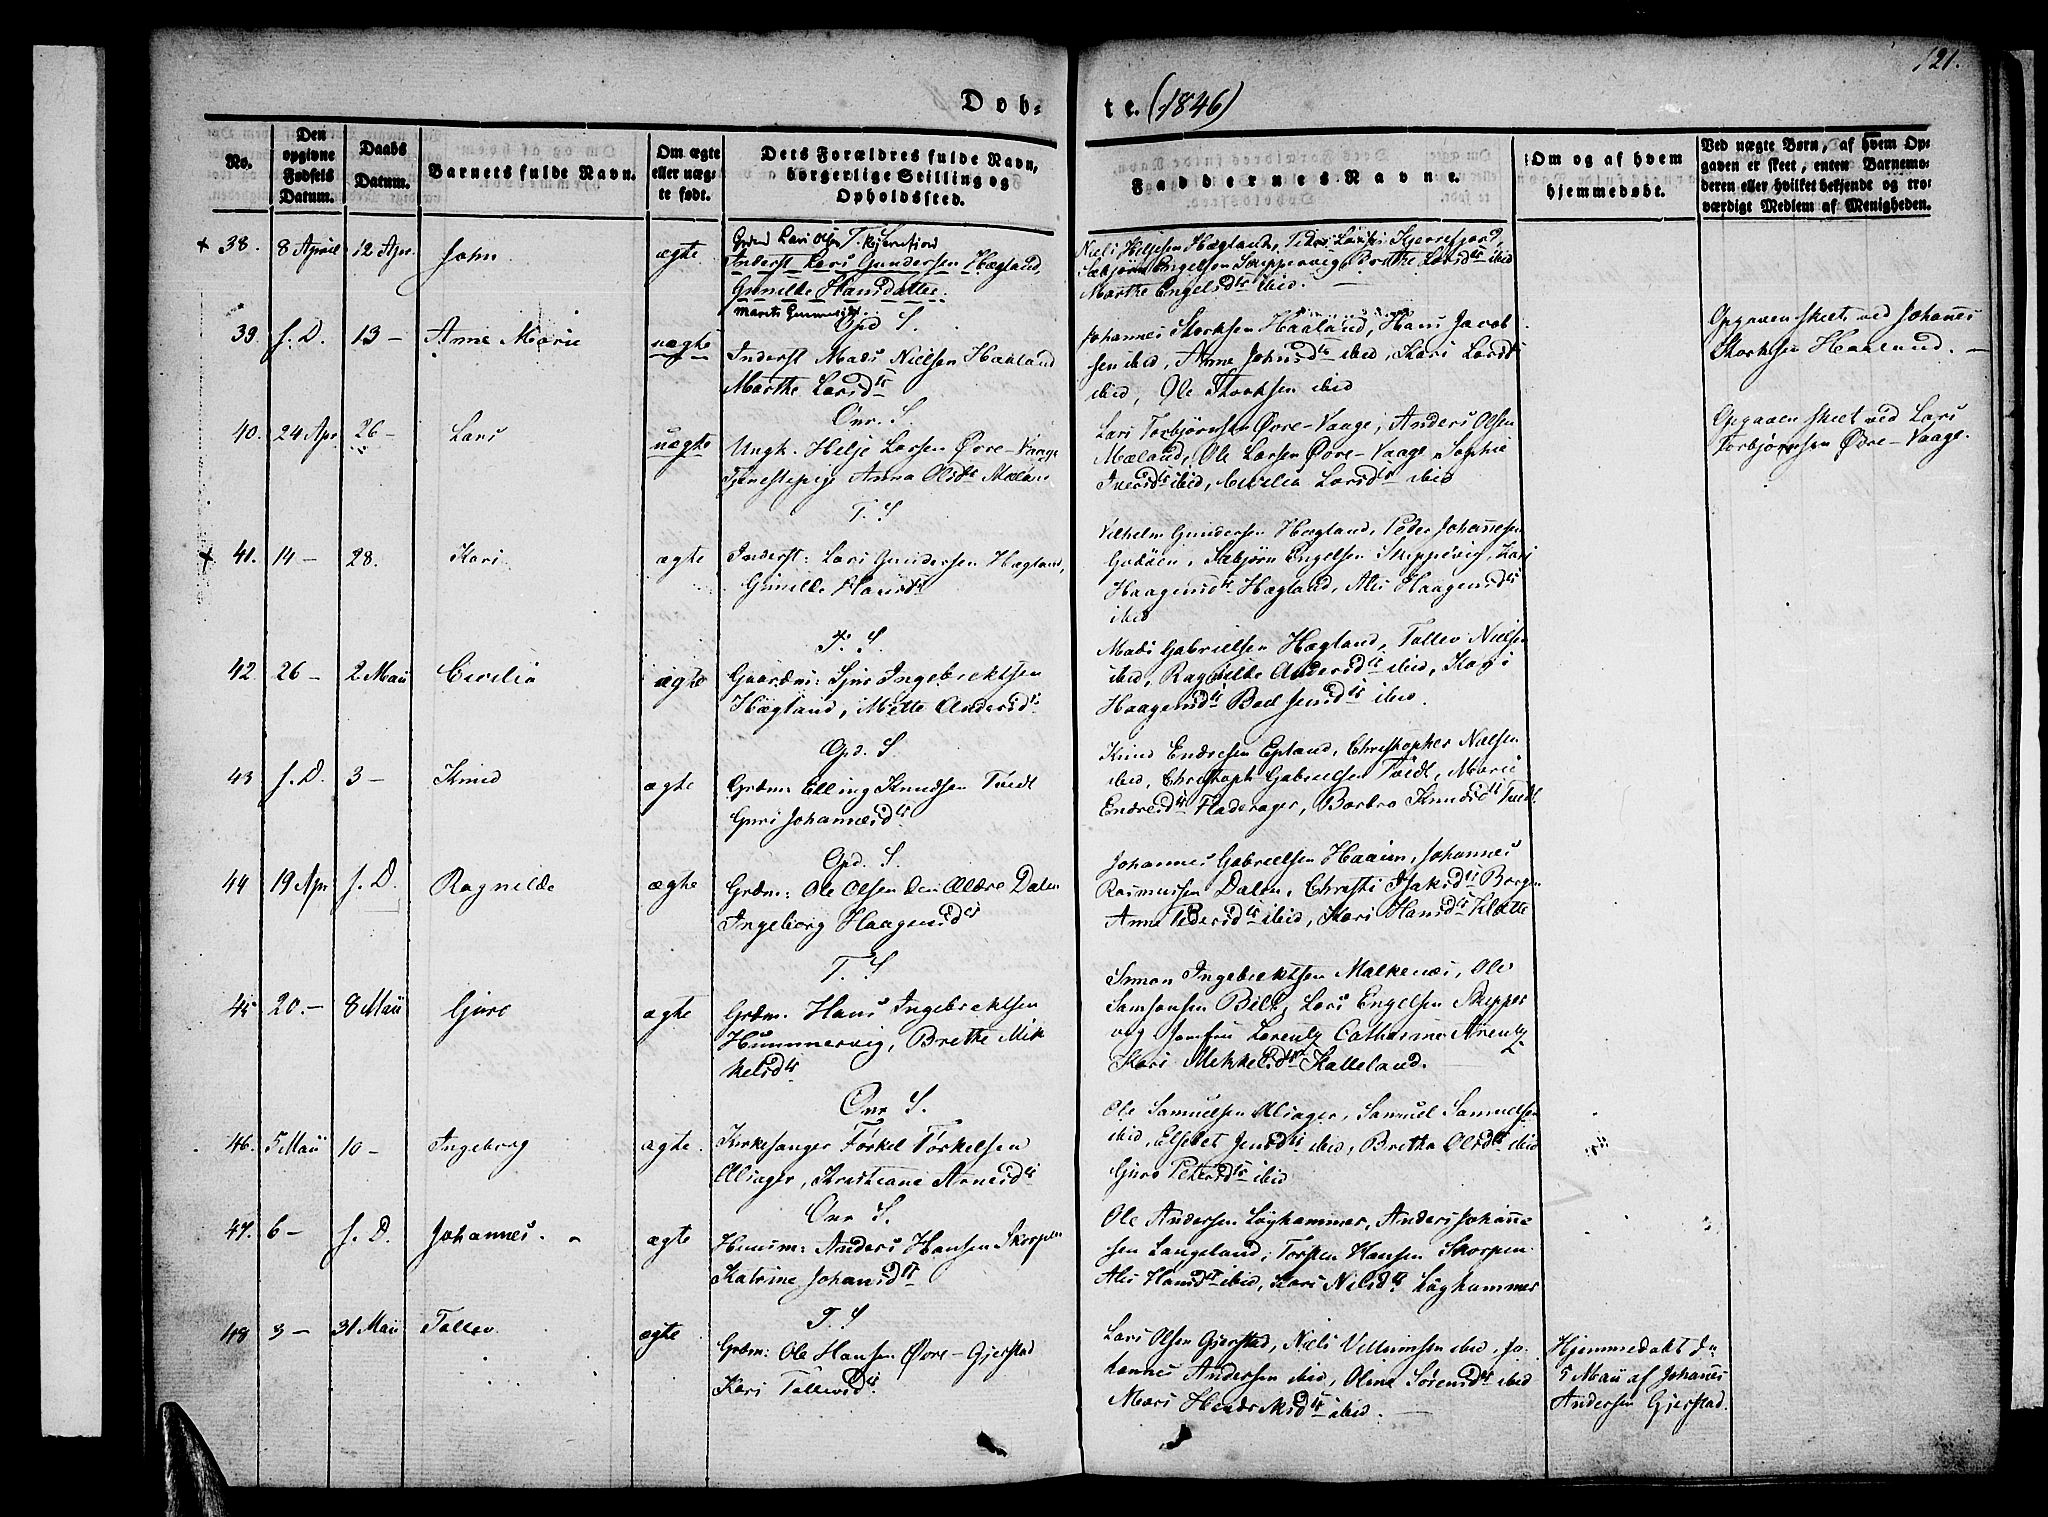 121.
Døb-
te. (1846)
No.
Den opgivne Fødsels Datum.
Daabs Datum.
Barnets fulde Navn.
Om ægte eller uægte født.
Dets Forældres fulde Navn, borgerlige Stilling og Opholdssted.
Faddernes Navne.
Om og af hvem hjemmedøbt.
Ved uægte Børn, af hvem Opgaven er skeet, enten Barnemoderen eller hvilket bekjendt og troværdigt Medlem af Menigheden.
+ 38. 8 April 12 Apr. John ægte
Lars Olsen T. S. Kjerrefjord
Inderst Lars Gundersen Hægland,
Gunilde Hansdatter.
Niels Heljesen Hægland, Peder Larsen Kjerrefjord,
Sæbjørn Engelsen Skippervig, Brithe Larsdtr ibid
Marthe Engelsdtr ibid.
39. s. D. 13 - Anne Marie uægte
Opd S.
Inderst Mads Nielsen Haaland
Marthe Larsdtr
Johannes Storksen Haaland, Hans Jacob
sen ibid, Anne Johnsdtr ibid, Kari Larsdtr
ibid, Ole Storksen ibid
Opgaven skeet ved Johanes
Storksen Haaland.
40. 24 Apr. 26 - Lars uægte
Onr. S.
Ungk. Helje Larsen Øvre-Vaage
Tjenestepige Anna Olsdtr Mæland
Lars Torbjørnsen Øvre-Vaage, Anders Olsen
Mæland, Ole Larsen Øvre-Vaage, Sophie
Iversdtr ibid, Cecilia Larsdtr ibid
Opgaven skeet ved Lars
Torbjørnsen Øvre-Vaage.
+ 41. 14 - 28. Kari ægte
T. S
Inderst: Lars Gundersen Hægland,
Gunilde Hansdtr
Vilhelm Gundersen Hægland, Peder Johannesen
Godøen, Sæbjørn Engelsen Skippevig, Kari
Haagensdtr Hægland, Ales Haagensdtr
ibid
42. 26 - 2 Maii Cecilia ægte
T. S.
Gaardm: Sjur Ingebrektsen
Hægland, Mette Andersdtr
Mads Gabrielsen Hægland, Tollev Nielsen
ibid, Ragnilde Andersdtr ibid, Kari
Haagensdtr Boel Jensdtr ibid.
43 s. D. 3 - Knud ægte
Opd. S
Grdm: Elling Knudsen Tvedt
Guri Johannesdtr
Knud Endresen Epland, Christopher Nielsen
ibid, Christoph Gabrielsen Tvedt, Marie
Endresdtr Fladerager, Barbro Knudsdtr Tvedt.
44 19 Apr s. D. Ragnilde ægte
Opd. S.
Grdm: Ole Olsen den Ældre Dalen
Ingeborg Haagensdtr
Johannes Gabrielsen Haaien, Johannes
Rasmussen Dalen, Christi Isaksdtr Borgen
Anne Pedersdtr ibid, Kari Hansdtr Kløtte
45 20. - 8 Maii Guro ægte
T. S
Grdm. Hans Ingebrektsen
Hummervig, Brithe Mik
kelsdtr
Simon Ingebrektsen Malkenæs, Ole
Samsonsen Bilt, Lars Engelsen Skipper
vig Jomfru Lorentz Catharine Arentz
Kari Mikkelsdtr Kalleland.
46. 5 Maii 10 - Ingeborg ægte
Onr S.
Kirkesanger Torkel Torkelsen
Alsager, Kristiane Arnesdtr
Ole Samuelsen Alsager, Samuel Samuelsen
ibid, Elsebet Jensdtr ibid, Britha Olsdtr ibid
Guro Petersdtr ibid
47. 6 - s. D. Johannes. ægte
Onr S.
Huusm: Anders Hansen Skorpen
Katrine Johansdtr
Ole Andersen Løghammer, Anders Johanne
sen Langeland, Torsten Hansen Skorpen
Ales Hansdtr ibid, Kari Nilsdtr Løghammer
48 3 - 31 Maii Tollev. ægte
T. S
Grdm: Ole Hansen Øvre-Gjerstad
Kari Tollevsdtr
Lars Olsen Gjerstad, Niels Villumsen ibid, Jo
hannes Andersen ibid, Oline Sørensdtr ibid
Mari Hendriksdtr ibid.
Hjemmedøbt d.
5 Maii af Johanes
Andersen Gjerstad.